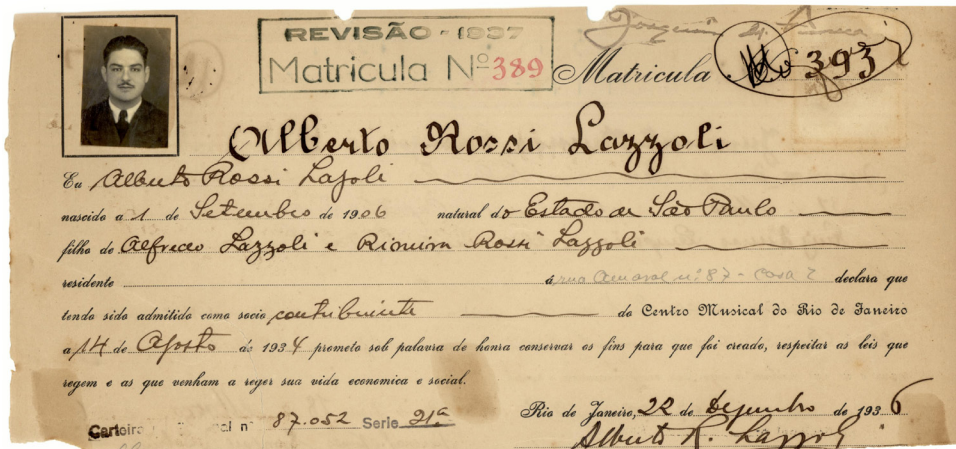 REVISÃO - 1937
Matricula Nº 389
Matricula Nº 393
Alberto Rossi Lazzoli
Eu Alberto Rossi Lazoli
nascido a 1 de Setembro de 1906 natural do Estado de São Paulo
filho de Alfredo Lazzoli e Rossi Lazzoli
residente á rua Amaral nº 87 - Casa 2 declara que
tendo sido admitido como socio contribuinte do Centro Musical do Rio de Janeiro
a 14 de Agosto de 1934 prometo sob palavra de honra conservar os fins para que foi creado, respeitar as leis que
regem e as que venham a reger sua vida economica e social.
Rio de Janeiro, 22 de Dezembro de 1936
Carteira nº 87.052 Serie 21ª
Alberto R. Lazzoli